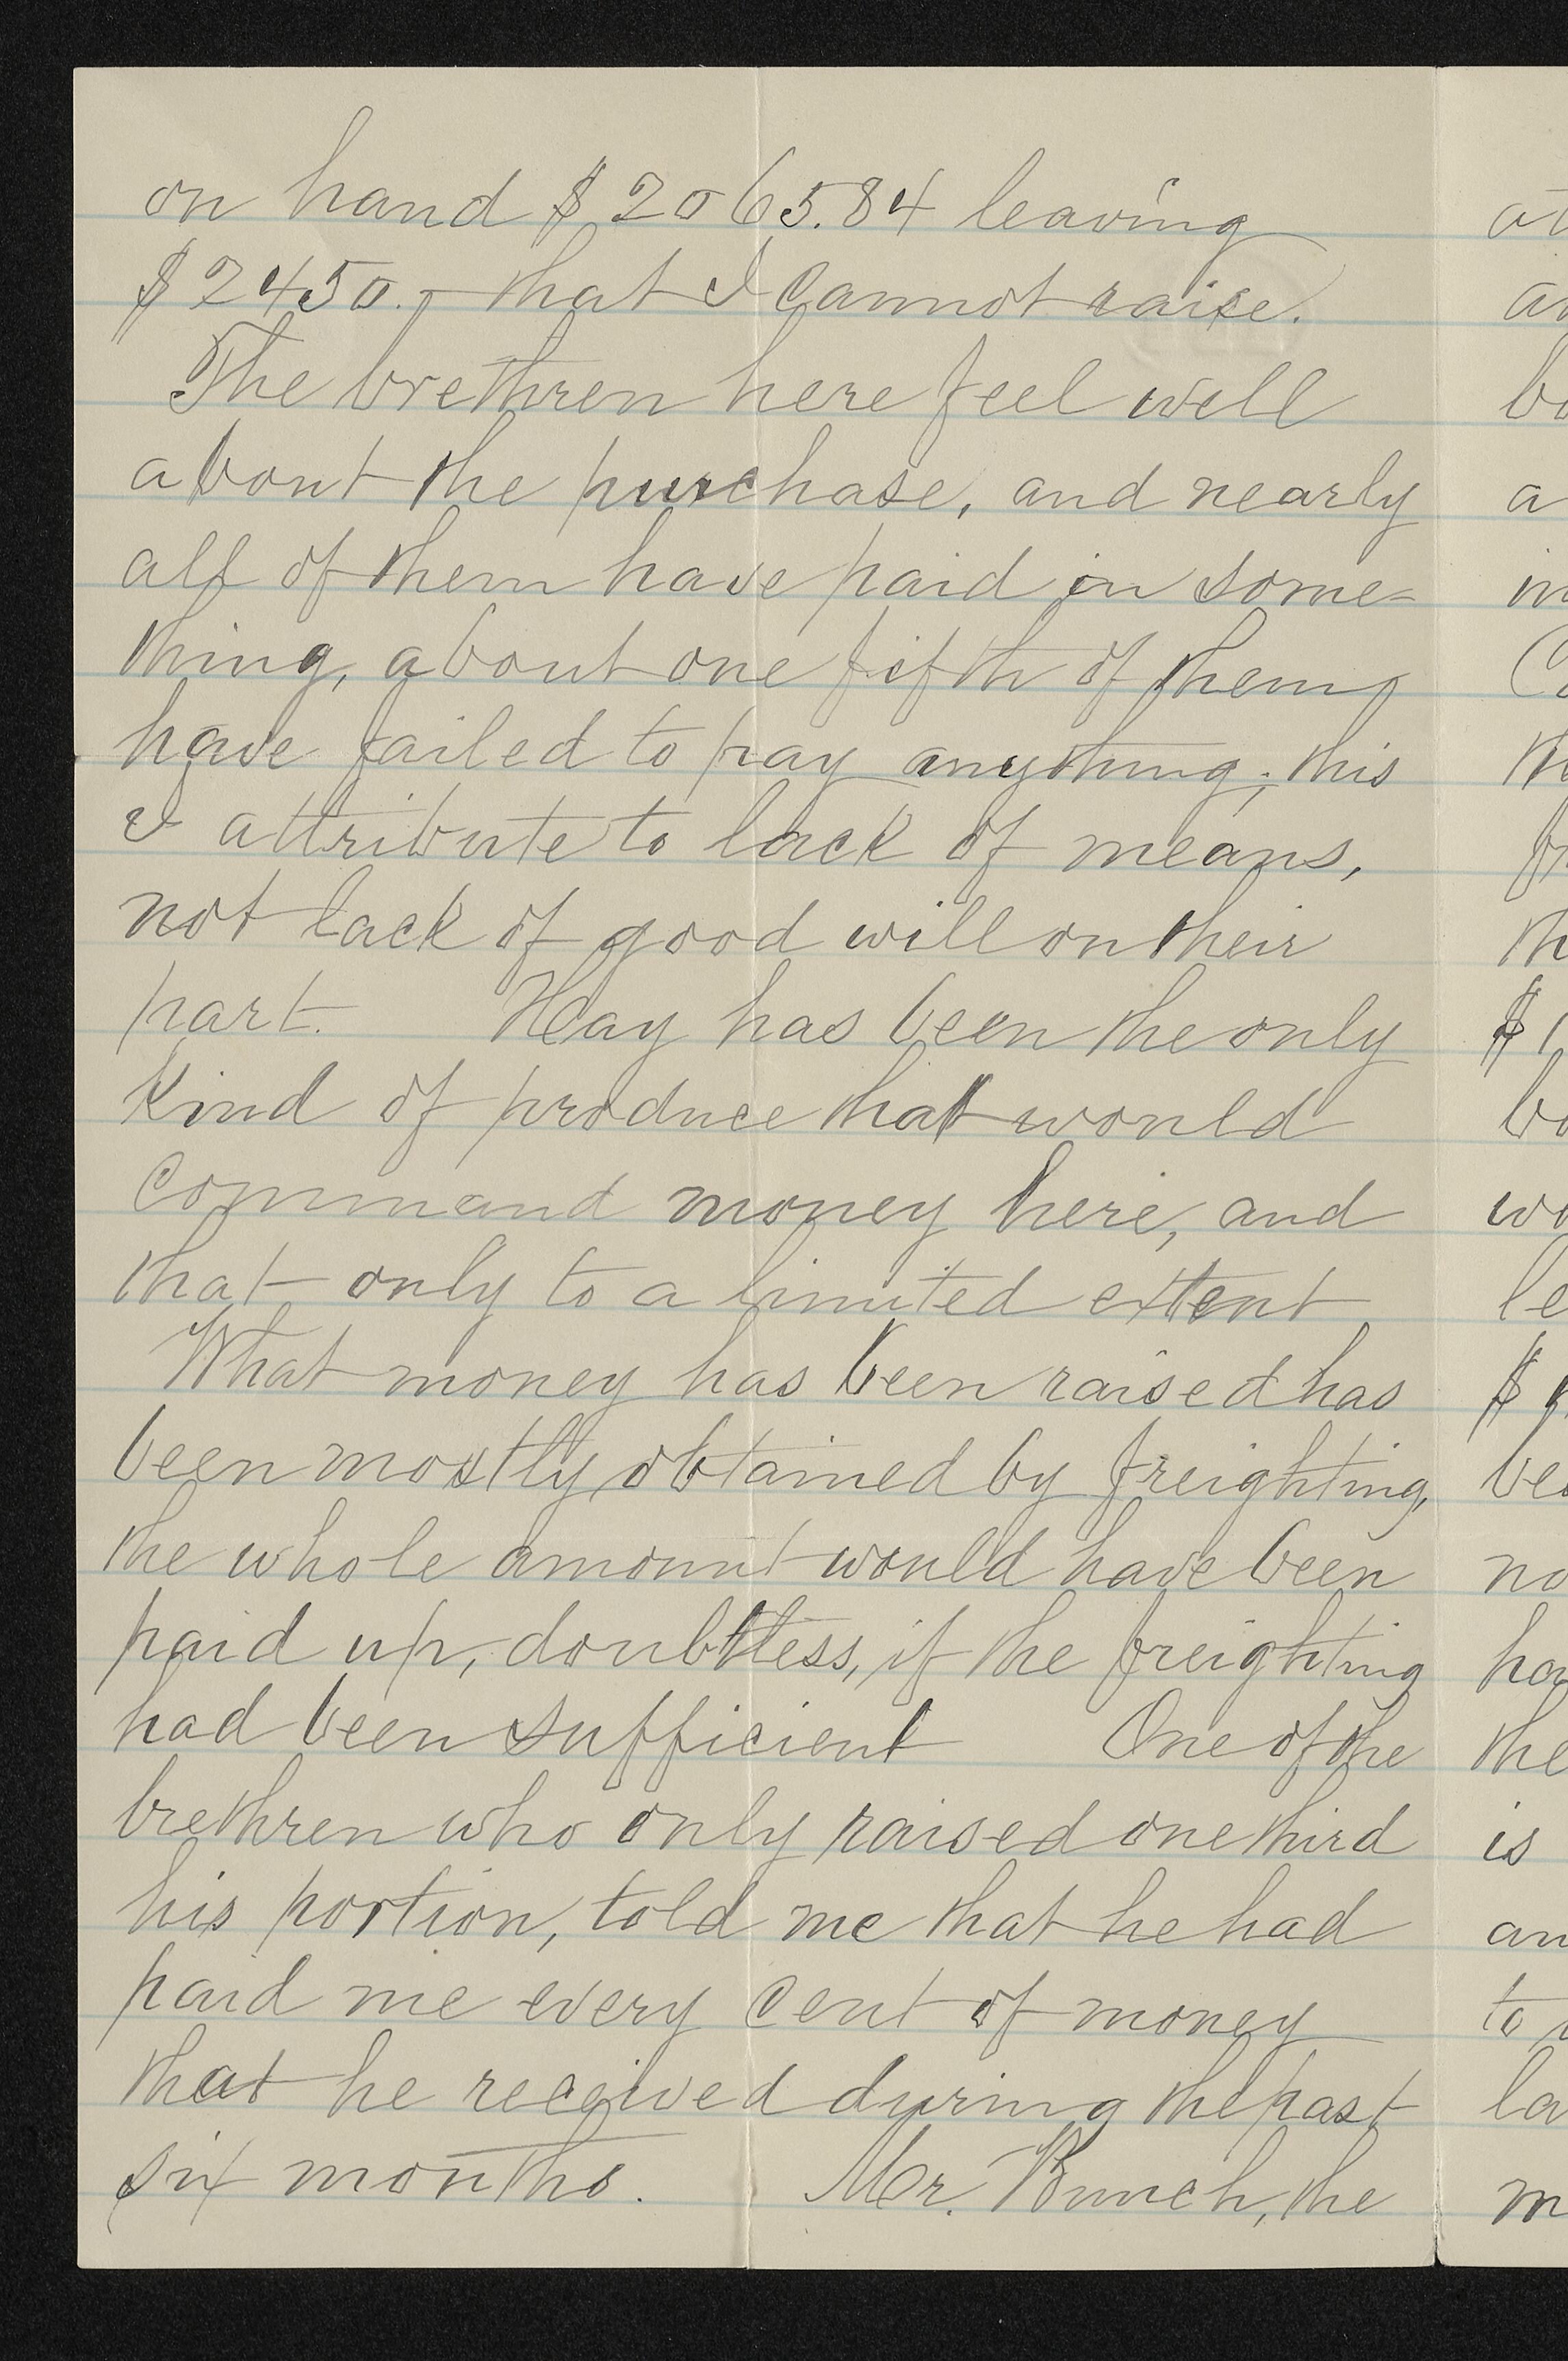 on hand $2065.84 leaving
$2450.- that I cannot raise.
The brethren here feel well
about the purchase, and nearly
all of them have paid in some-
thing, about one fifth of them
have failed to pay anything; this
I attribute to lack of means,
not lack of good will on their
part. Hay has been the only
kind of produce that would
command money here, and
that only to a limited extent
What money has been raised has
been mostly obtained by freighting,
the whole amount would have been
paid up, doubtless, if the freighting
had been sufficient One of the
brethren who only raised one third
his portion, told me that he had
paid me every cent of money
that he received during the past
six months. Mr. Bunch, the